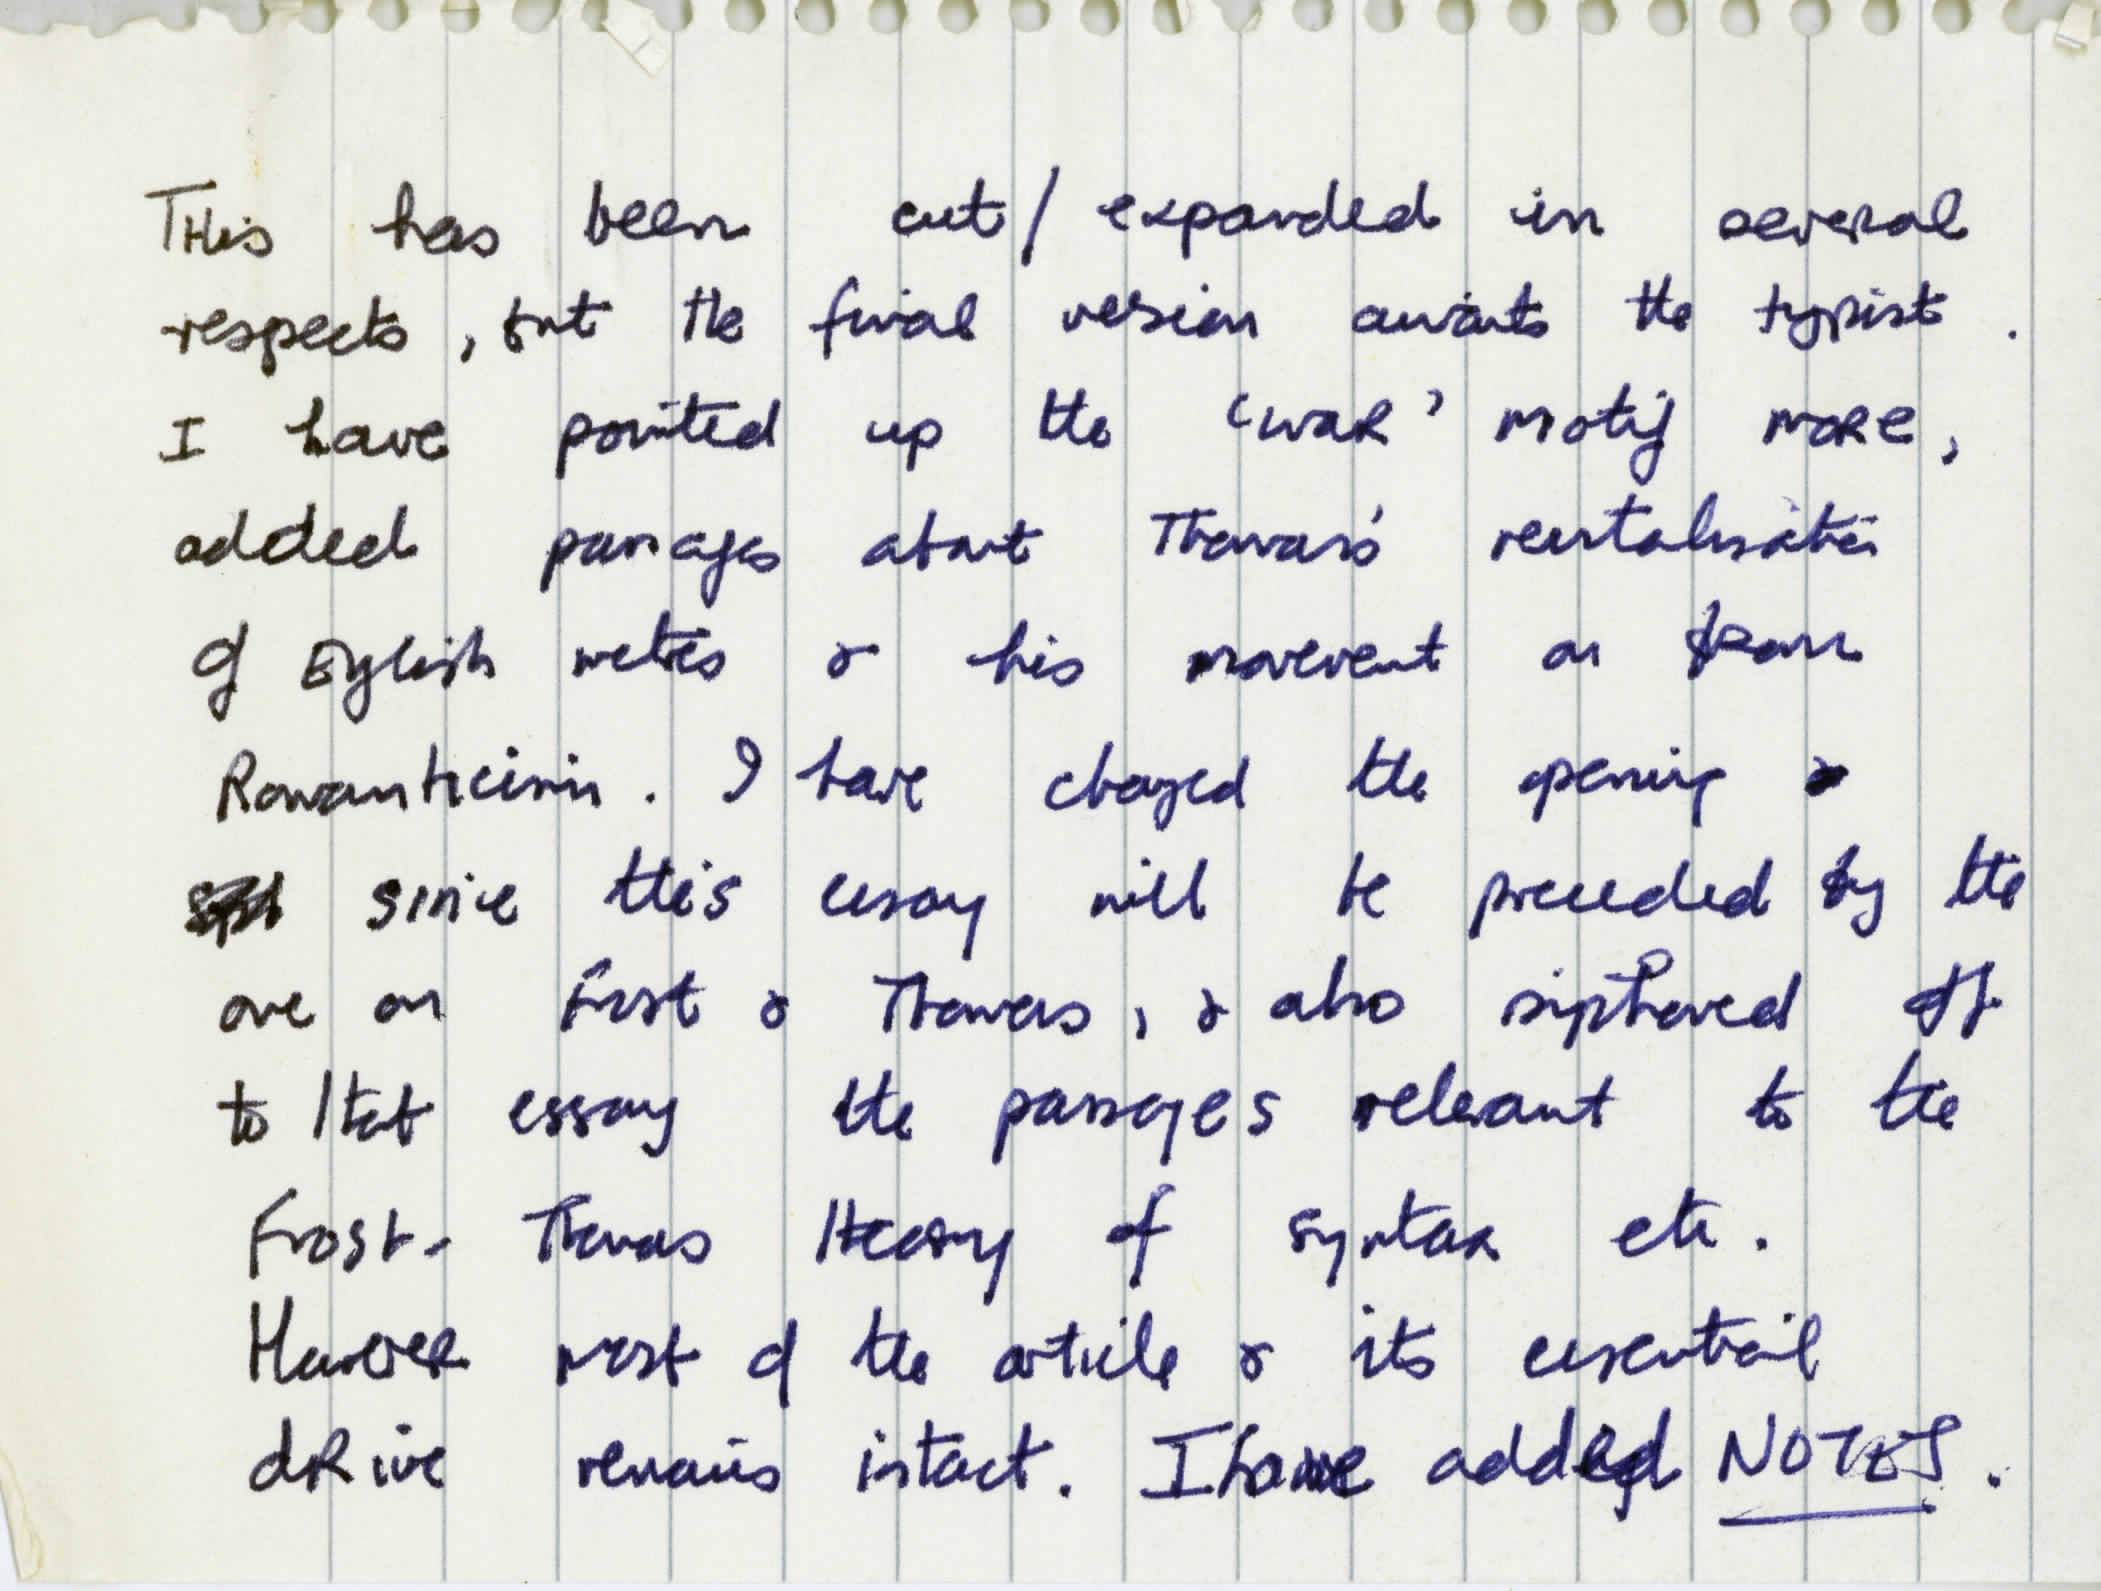 This has been cut/expanded in several
respects, but the final version awaits the typist.
I have pointed up the 'war' motif more,
added passages about Thomas's revitalisation
of English metres & his movement on from
Romanticism. I have changed the opening &
since this essay will be preceded by the
one on Frost & Thomas, & also siphoned off
to that essay the passages relevant to the
Frost-Thomas theory of syntax etc.
However most of the article & its essential
drive remains intact. I have added NOTES.